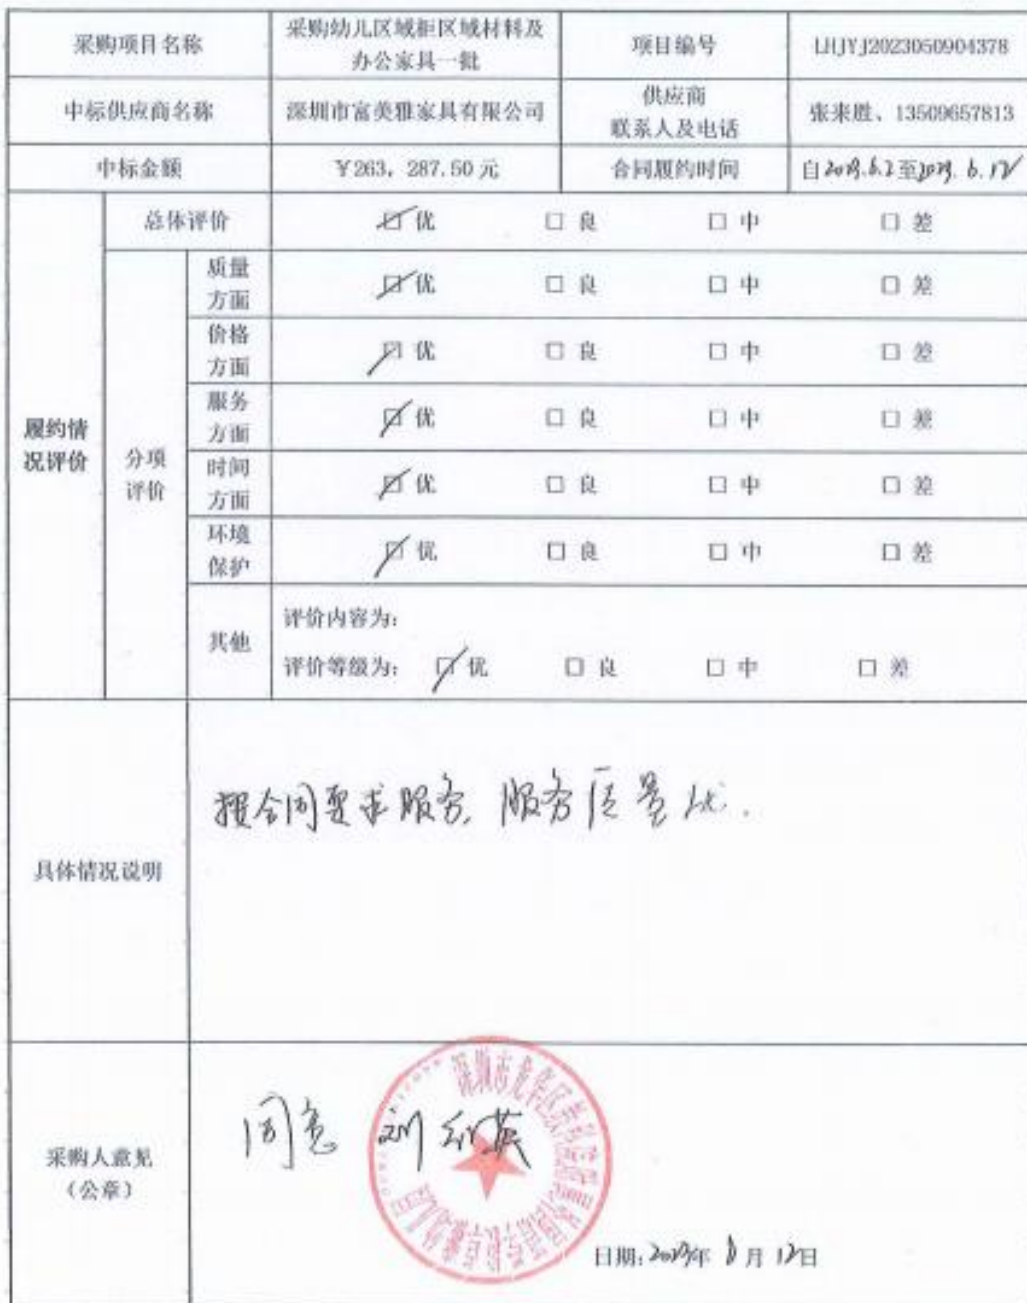 采购项目名称
采购幼儿区域柜区域材料及
办公家具一批
项目编号
LHJYJ2023050904378
中标供应商名称
深圳市富美雅家具有限公司
供应商
联系人及电话
张来胜、13509657813
中标金额
￥263，287.50 元
合同履约时间
自2023.6.2至2023.6.12
履约情
况评价
总体评价
☑ 优 □ 良 □ 中 □ 差
分项
评价
质量
方面
☑ 优 □ 良 □ 中 □ 差
价格
方面
☑ 优 □ 良 □ 中 □ 差
服务
方面
☑ 优 □ 良 □ 中 □ 差
时间
方面
☑ 优 □ 良 □ 中 □ 差
环境
保护
☑ 优 □ 良 □ 中 □ 差
其他
评价内容为：
评价等级为： ☑ 优 □ 良 □ 中 □ 差
具体情况说明
按合同要求服务, 服务质量优.
采购人意见
（公章）
同意 刘
深圳市龙华区教科院附属
幼儿园
日期:2023年8月12日